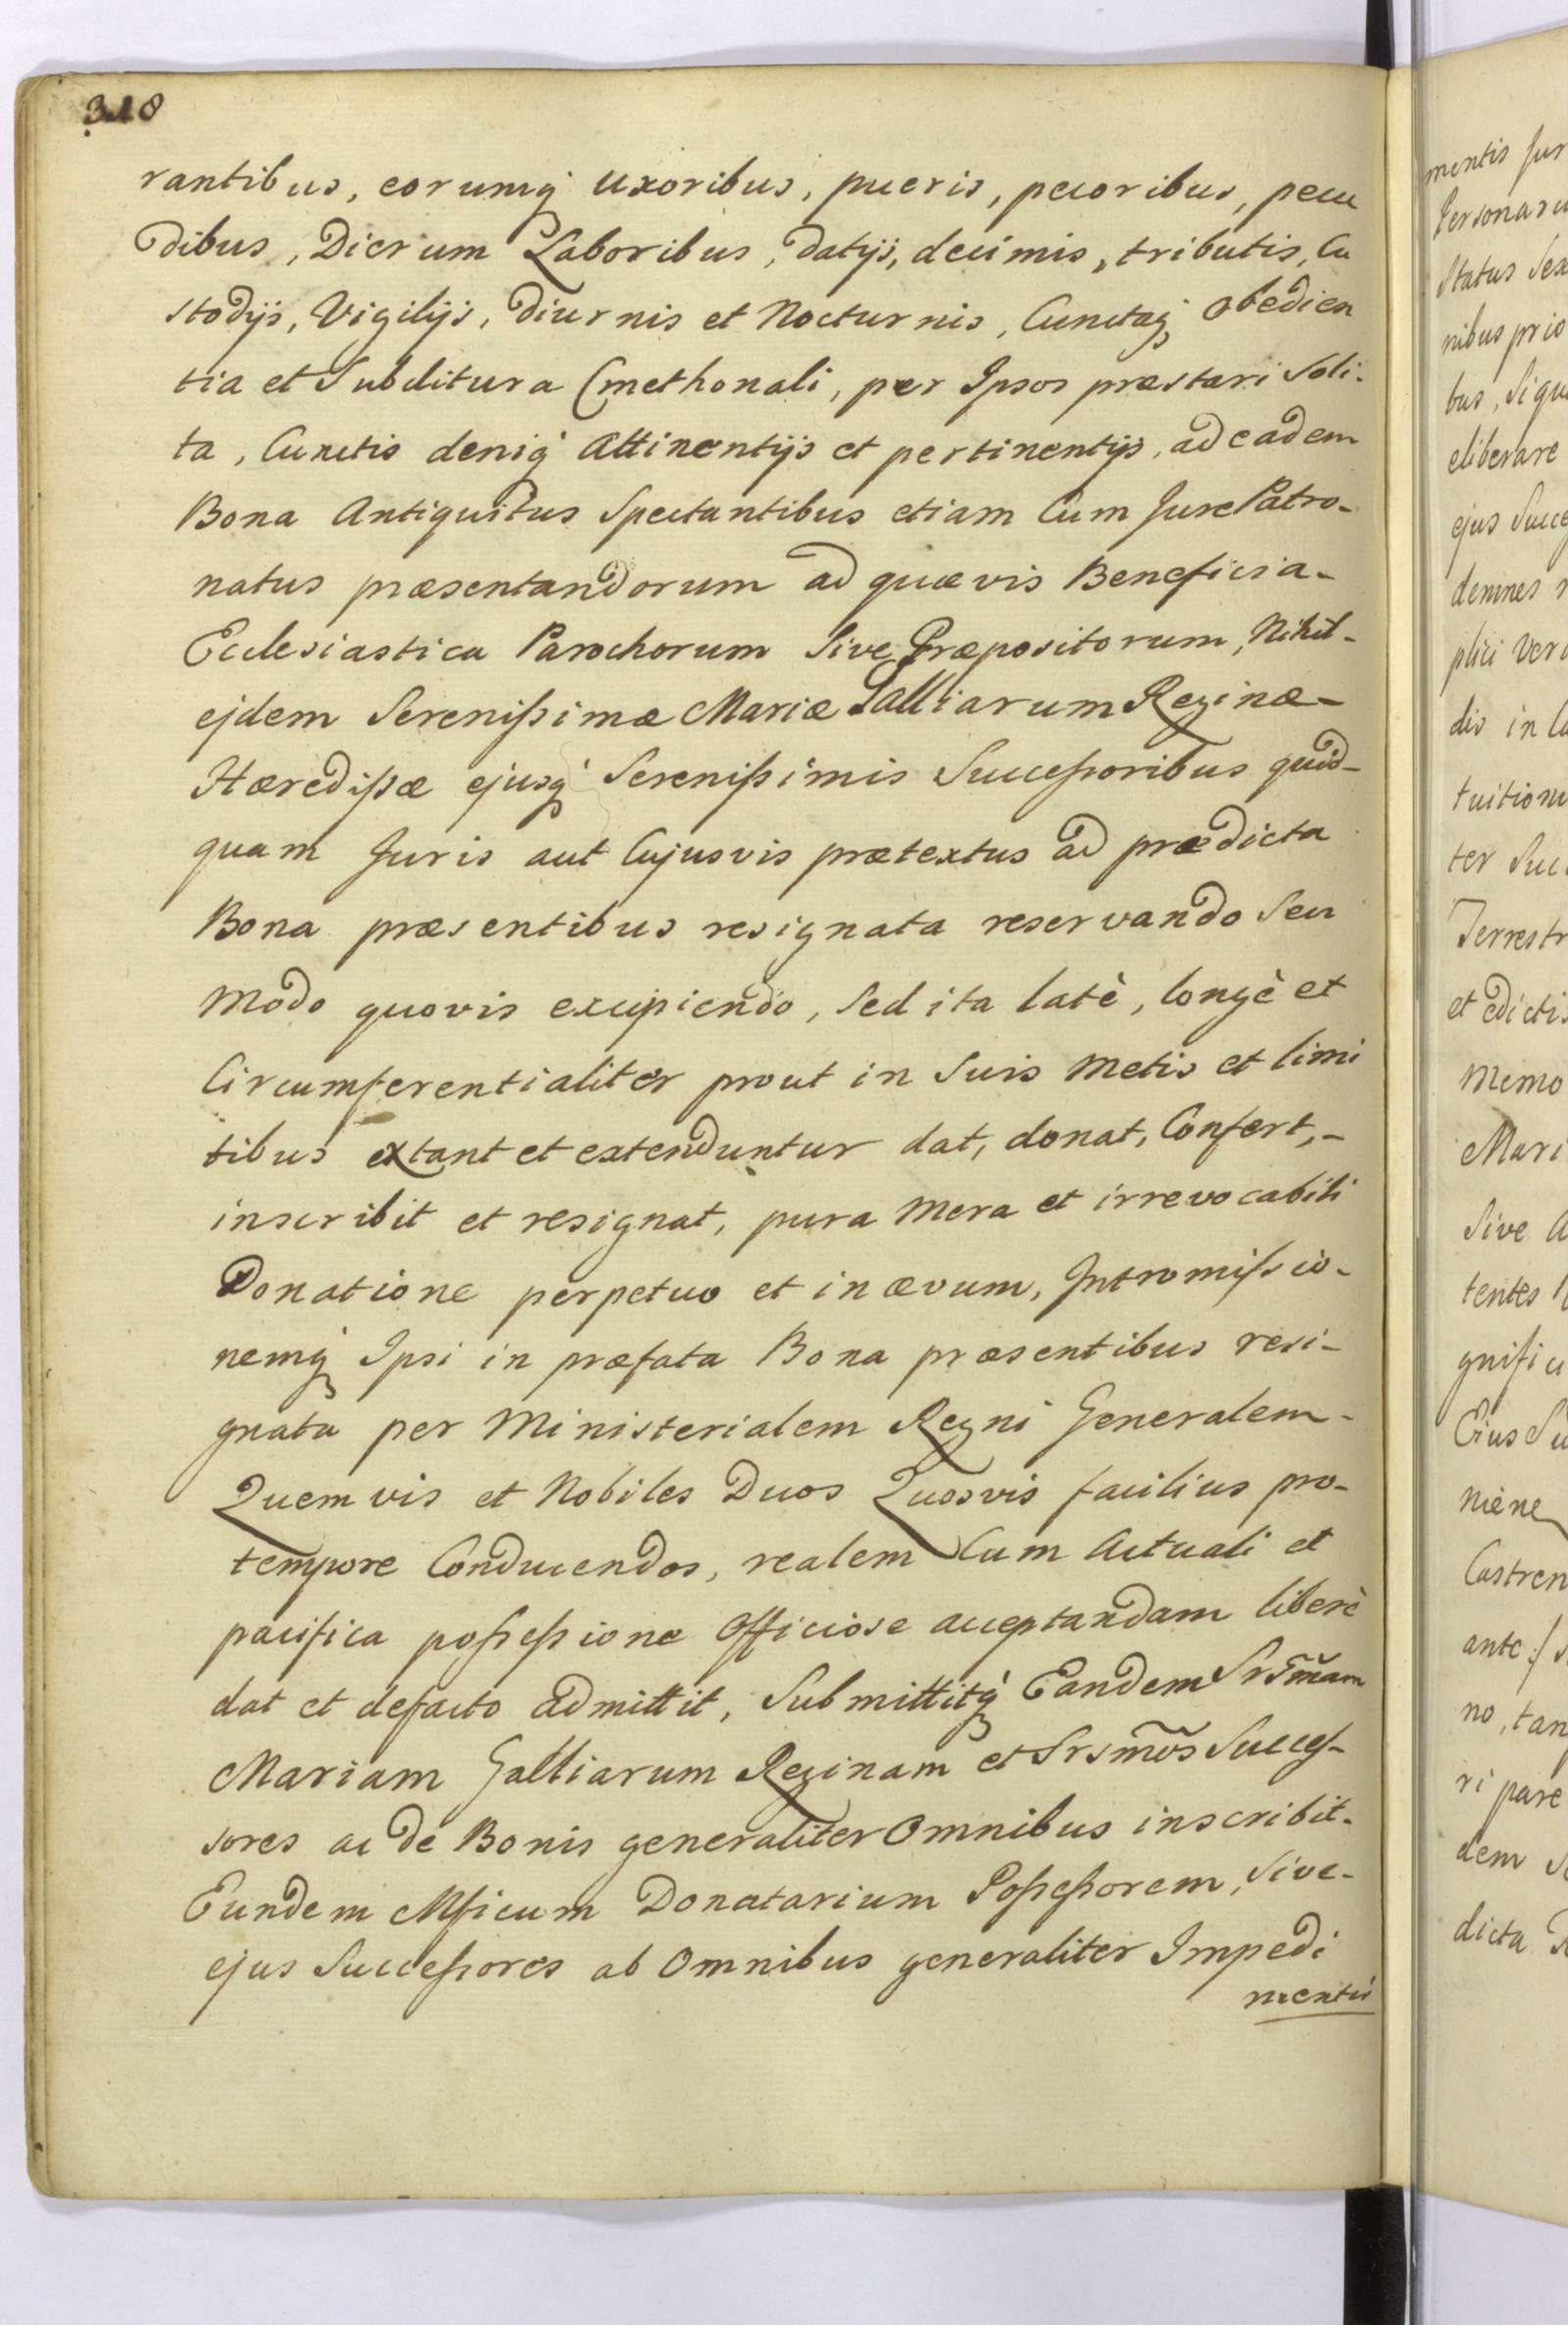 318
rantibus, eorumq́ uxoribus, pueris, pecoribus, pecu
dibus, Dierum Laboribus, datijs, decimis, tributis, Cu
stodijs, Vigilijs, diurnis et Nocturnis, Cunctaq́ obedien
tia et Subditura Cmethonali, per Ipsos præstari Soli-
ta, Cunctis deniq́ Attinentijs et pertinentijs, ad eadem
Bona Antiquitus Spectantibus etiam Cum Jure Patro-
natus præsentandorum ad quævis Beneficia-
Ecclesiastica Parochorum Sive Præpositorum, Nihil-
ejdem Serenißimæ Mariæ Galliarum Reginæ-
Hæredißæ ejusq́ Serenißimis Succeßoribus quid-
quam Juris aut Cujusvis prætextus ad prædicta
Bona præsentibus resignata reservando Seu
Modo quovis excipiendo, Sed ita latè, longè et
Circumferentialiter prout in Suis Metis et limi
tibus extant et extenduntur dat, donat, Confert,-
inscribit et resignat, pura Mera et irrevocabili
Donatione perpetuo et in ævum, Intromißio-
nemq́ Ipsi in præfata Bona præsentibus resi-
gnata per Ministerialem Regni Generalem-
Quemvis et Nobiles Duos Quosvis facilius pro-
tempore Conducendos, realem Cum Actuali et
pacifica poßeßione Officiose acceptandam liberè
dat et defacto admittit, Submittitq́ Eandem Srsm̃am
Mariam Galliarum Reginam et Srsmõs Succeß-
sores ac de Bonis generaliter Omnibus inscribit-
Eundem Mficum Donatarium Poßeßorem, Sive-
ejus Succeßores ab Omnibus generaliter Impedi
mentis
mentis Jur
Personaru
Status Sex
nibus prio
bus, Siqu
eliberare
ejus Succe
demnes
plici
dis in
tuition
ter Suc
Terrestr
et edictis
Memo
Mari
Sive
tentes
gnific
Ejus Su
niene
Castren
ante
no, tan
ri pare
dem
dicta